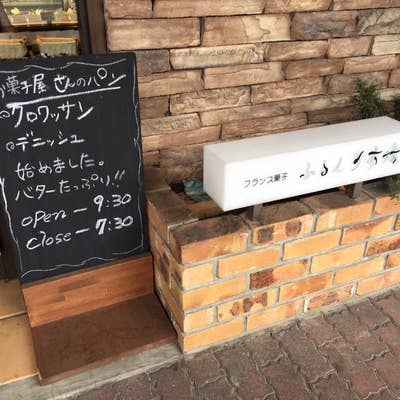 お菓子屋さんのパン
クロワッサン
デニッシュ
始めました。
バターたっぷり!!
open - 9:30
close - 7:30
フランス菓子